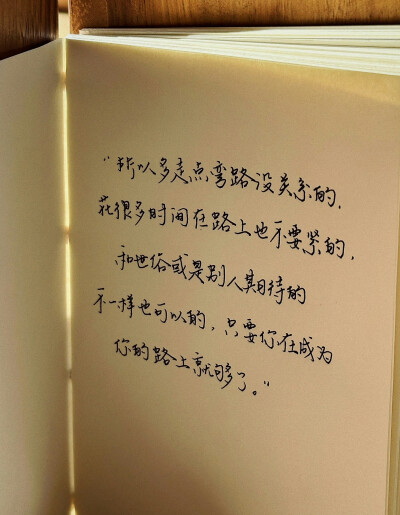 “所以多走点弯路没关系的，
花很多时间在路上也不要紧的，
和世俗或是别人期待的
不一样也可以的，只要你在成为
你的路上就够了。”